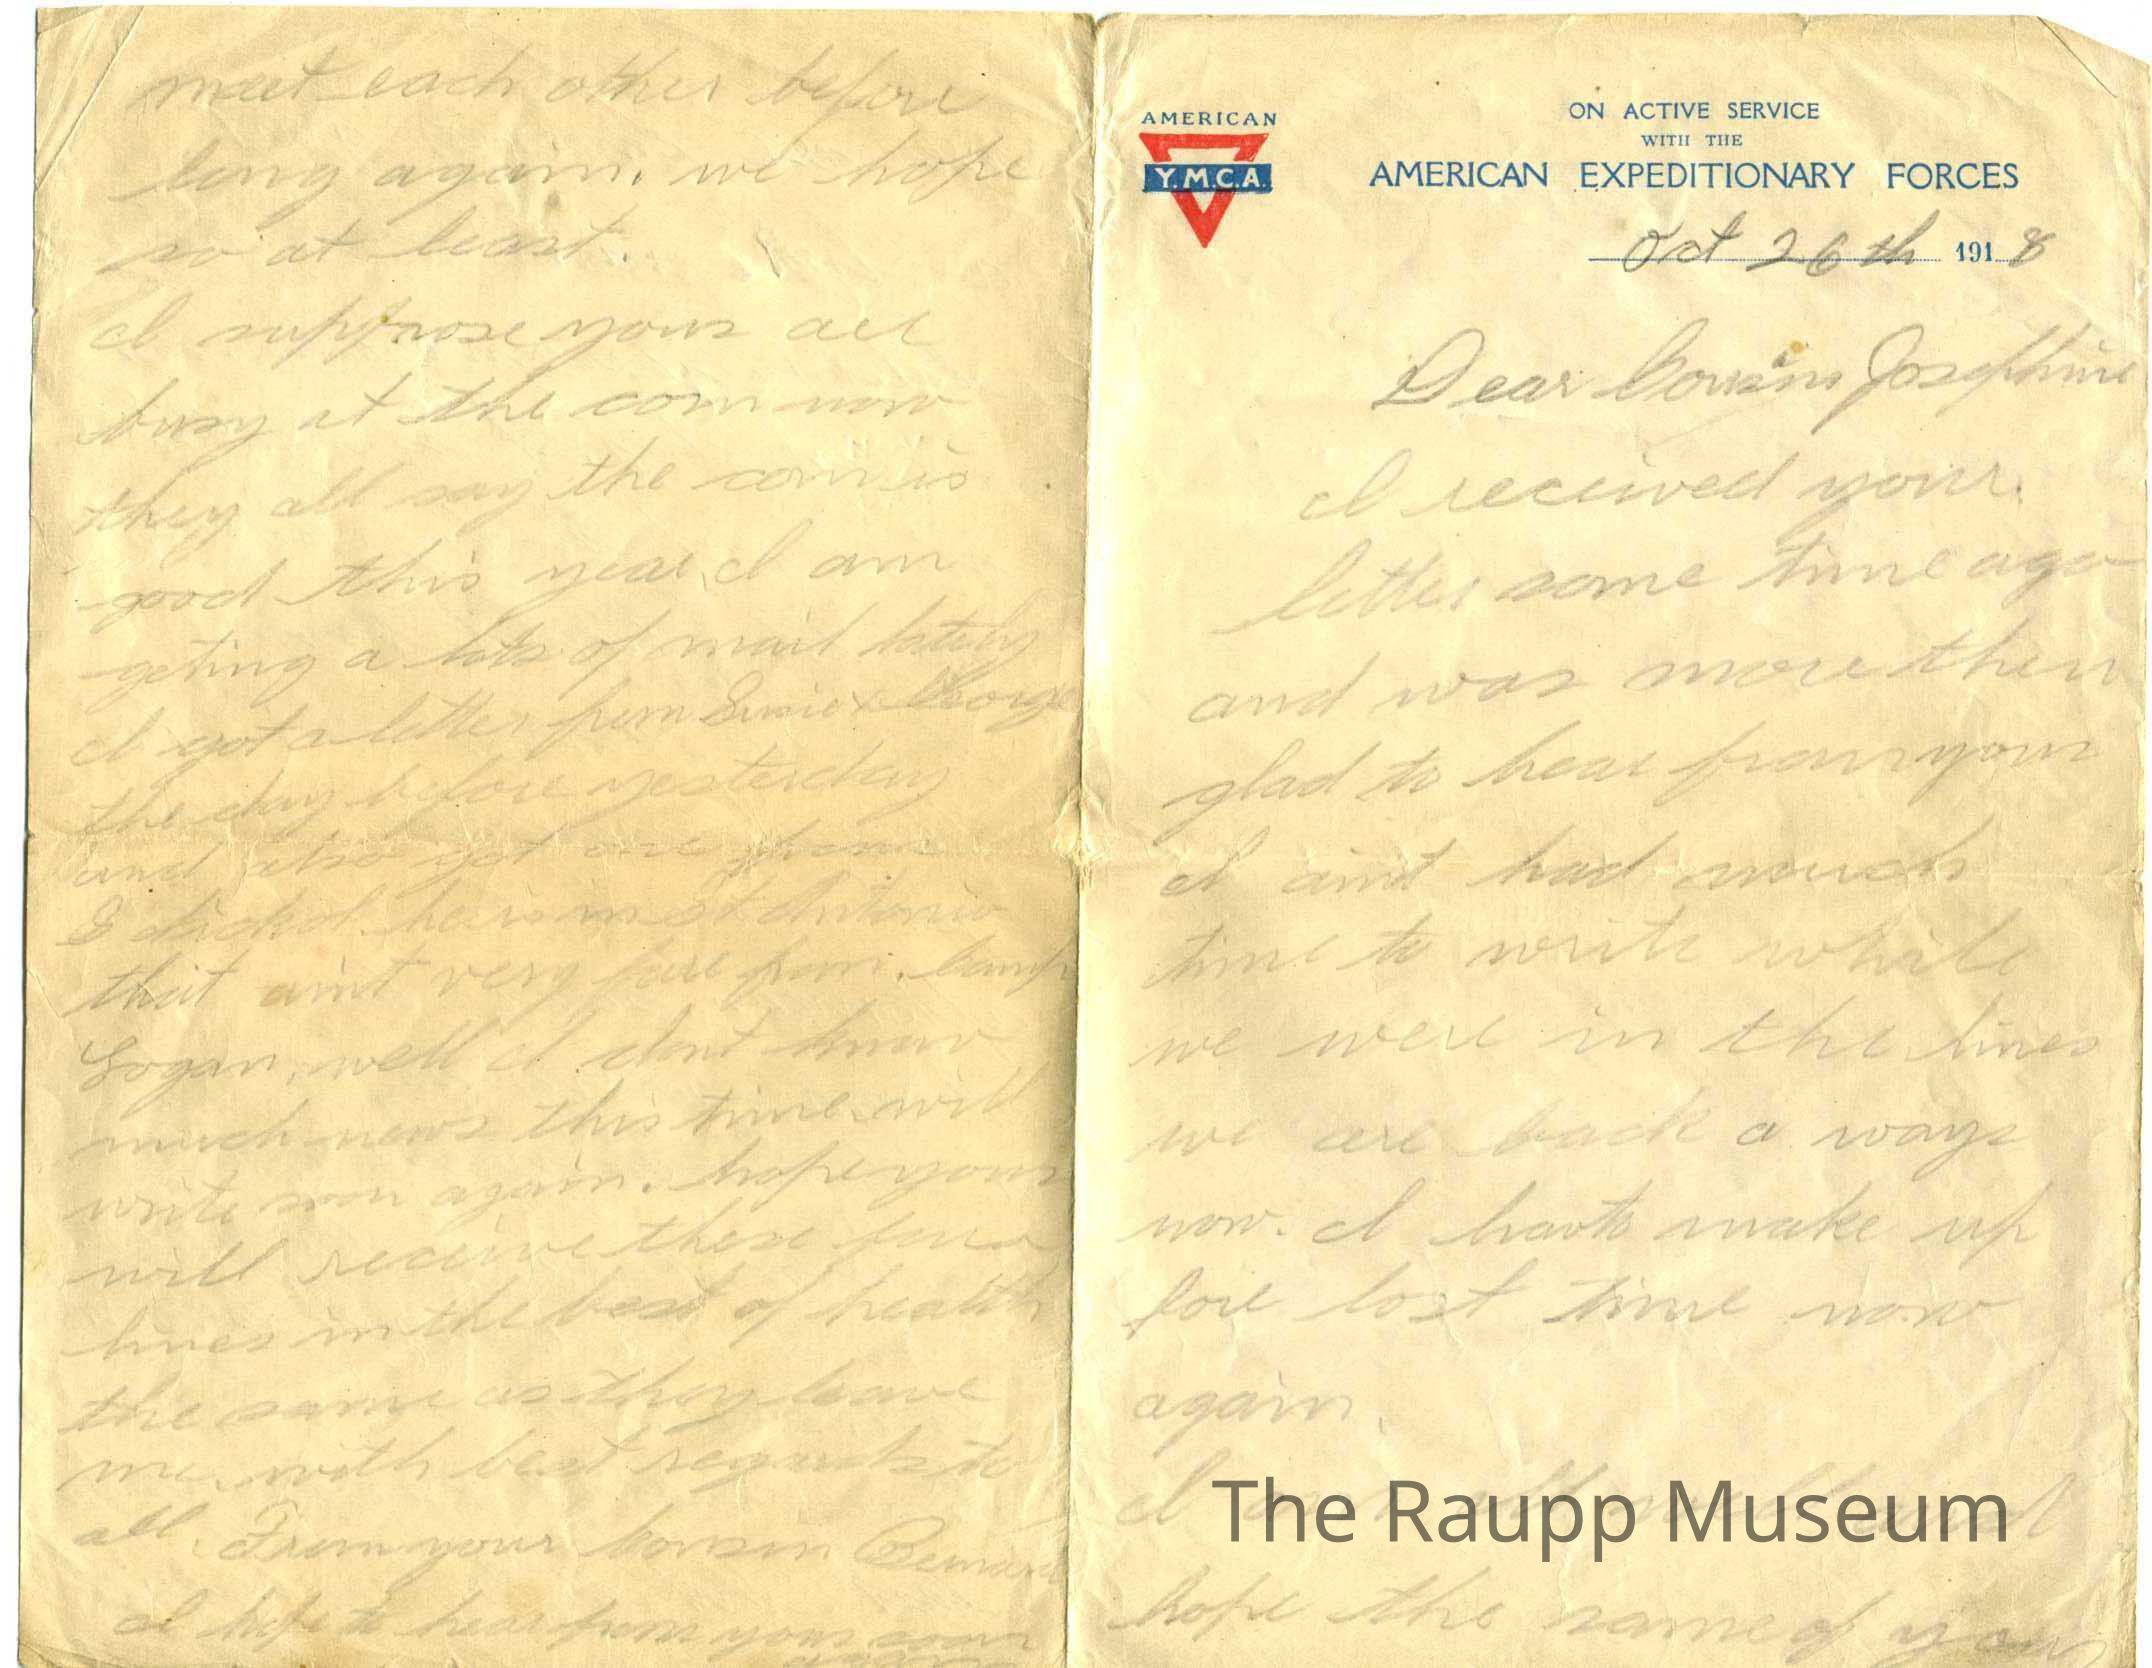 meet each other before
long again. we hope
so at least.
I suppose yous are
busy at the corn now
they all say the corn is
good this year. I am
geting a lots of mail lately
I got a letter from Susie & George
the day before yesterday
and also got one from
he is in St Antonio
that aint very fare from. Camp
Logan. well I dont know
much news this time. will
write soon again. hope yous
will receive these few
lines in the best of health
the same as they leave
me. with best regards to
all. From your Cousin Bernard
I hope to hear from yous soon
again
AMERICAN
Y.M.C.A.
ON ACTIVE SERVICE
WITH THE
AMERICAN EXPEDITIONARY FORCES
Oct 26th 1918
Dear Cousin Josephine
I received your.
letter some time ago
and was more then
glad to hear from yous
I aint had much
time to write while
we were in the lines
we are back a ways
now. I havto make up
fore lost time now
again.
I
The Raupp Museum
hope the same of yous